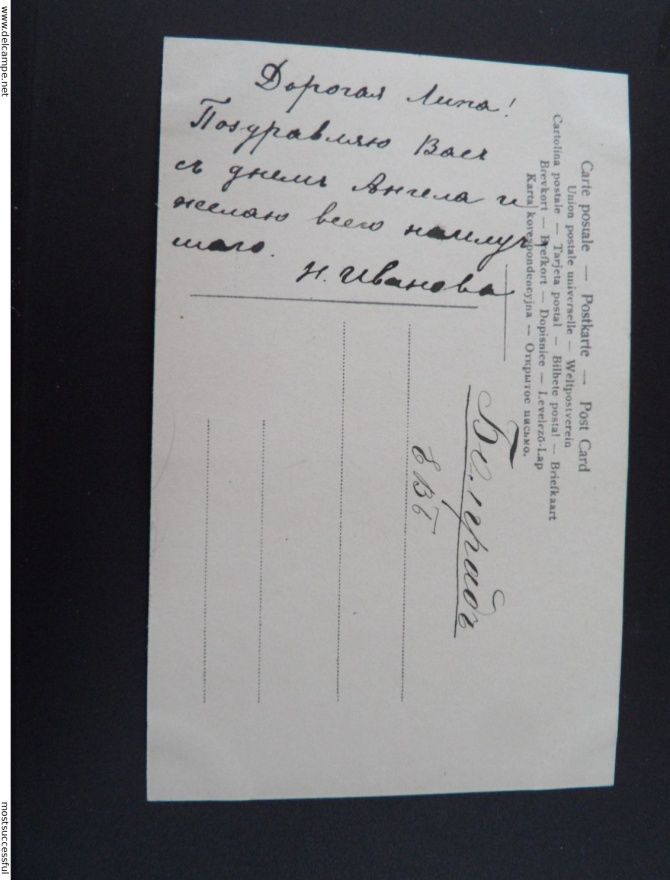 www.delcampe.net
Дорогая Липа!
Поздравляю Васъ
съ днемъ Ангела и
желаю всего наилуч
шаго.
Н. Иванова
Carte postale — Postkarte — Post Card
Union postale universelle — Weltpostverein
Cartolina postale — Tarjeta postal — Bilhete postal — Briefkaart
Brevkort — Brefkort — Dopisnice — Levelező-Lap
Karta korespondencyjna — Открытое письмо.
Е В Б
mostsuccessful